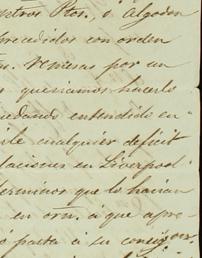 otros Ptos., ó algodon
precedidos con orden
remesas por un
queriamos hacerlo
quedando entendido en
cualquier deficit
laciones en Liverpool
terminos que lo harian
en orn. á que apre
ó pasta á su consig